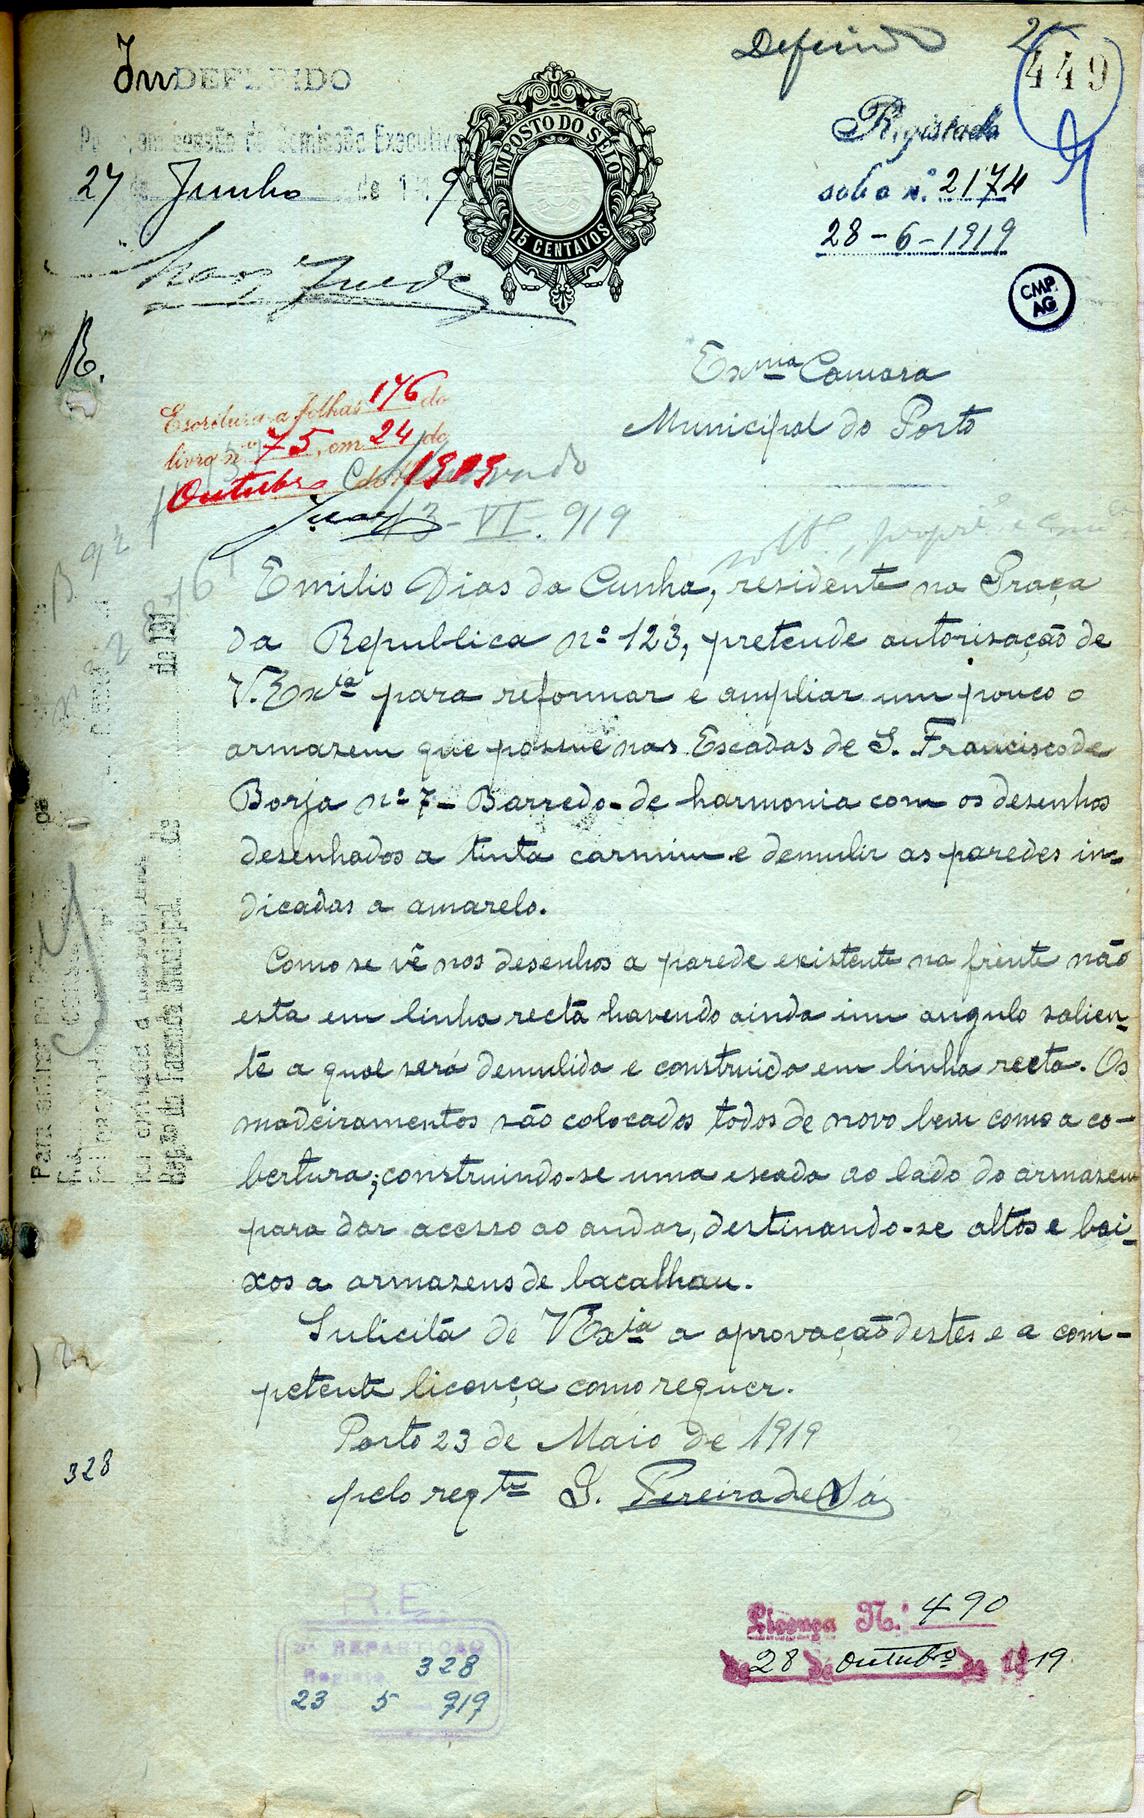 Deferido
449
InDEFERIDO
Porto, em sessão da Comissão Executiva
27 de Junho de 1919
IMPOSTO DO SELO
15 CENTAVOS
Registado
sob o n.º 2174
28-6-1919
CMP
AG
R.
Exma Camara
Municipal do Porto
Escritura a folhas 176 do
livro nº 75, em 24 de
Outubro de 1919
13-VI.919
Emilio Dias da Cunha, residente na Praça
da Republica nº 123, pretende autorisação de
V. Exia para reformar e ampliar um pouco o
armazem que possue nas Escadas de S. Francisco de
Borja nº 7 - Barredo - de harmonia com os desenhos
desenhados a tinta carmim e demulir as paredes in-
dicadas a amarelo.
Como se vê nos desenhos a parede existente na frente não
esta em linha recta havendo ainda um angulo salien-
te a qual será demulida e construida em linha recta. Os
madeiramentos são colocados todos de novo bem como a co-
bertura; construindo-se uma escada ao lado do armazem
para dar acesso ao andar, destinando-se altos e bai-
xos a armazens de bacalhau.
Sulicita de VExia a aprovação destes e a com-
petente licença como requer.
Porto 23 de Maio de 1919
pelo reqte G. Pereira de Sá
328
R.E.
3ª REPARTIÇÃO
Registo 328
23 5 919
Licença N.º 490
de 28 de Outubro de 1919